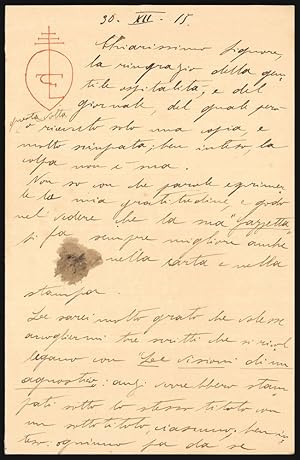 30. XII. 15.
Chiarissimo Signore,
la ringrazio della gen
tile ospitalità, e del
giornale, del quale però
questa volta
ò ricevuto solo una copia, e
molto sciupata; ben inteso, la
colpa non è sua.
Non so con che parole esprimer
le la mia gratitudine, e godo
nel vedere che la sua "Gazzetta"
si fa sempre migliore anche
nella carta e nella
stampa.
Le sarei molto grato che volesse
accogliermi tre scritti che si ricol
legano con "Le visioni di un
agnostico: anzi vorrebbero stam
pati sotto lo stesso titolo con
un sottotitolo ciascuno; ben in
teso: ognuno fa da se